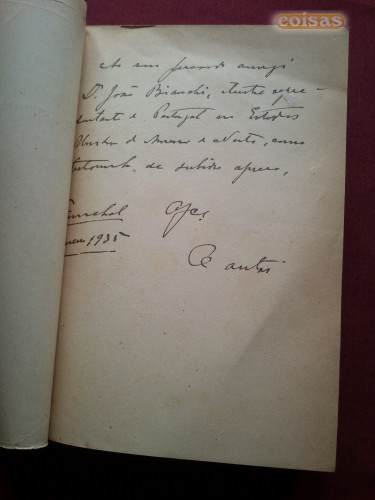 coisas
Ao seu querido amigo
D. João Bianchi, ilustre repre-
sentante de Portugal nos Estados
Unidos da America do Norte, como
testemunho de subido apreço,
Funchal
1935
of.
O autor